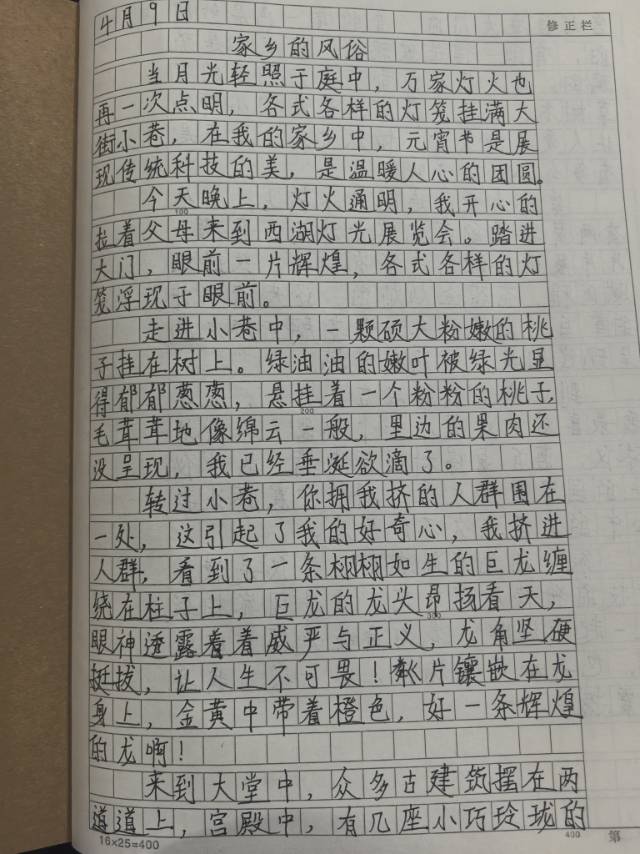 4月9日
修正栏
家乡的风俗
当月光轻照于庭中，万家灯火也
再一次点明，各式各样的灯笼挂满大
街小巷，在我的家乡中，元宵节是展
现传统科技的美，是温暖人心的团圆。
今天晚上，灯火通明，我开心的
100
拉着父母来到西湖灯光展览会。踏进
大门，眼前一片辉煌，各式各样的灯
笼浮现于眼前。
走进小巷中，一颗硕大粉嫩的桃
子挂在树上。绿油油的嫩叶被绿光显
得郁郁葱葱，悬挂着一个粉粉的桃子，
200
毛茸茸地像绵云一般，里边的果肉还
没呈现，我已经垂涎欲滴了。
转过小巷，你拥我挤的人群围在
一处，这引起了我的好奇心，我挤进
人群，看到了一条栩栩如生的巨龙缠
绕在柱子上，巨龙的龙头昂扬看天，
300
眼神透露着着威严与正义，龙角坚硬
挺拔，让人生不可畏！片镶嵌在龙
身上，金黄中带着橙色，好一条辉煌
的龙啊！
来到大堂中，众多古建筑摆在两
道道上，宫殿中，有几座小巧玲珑的
16×25=400
400
第